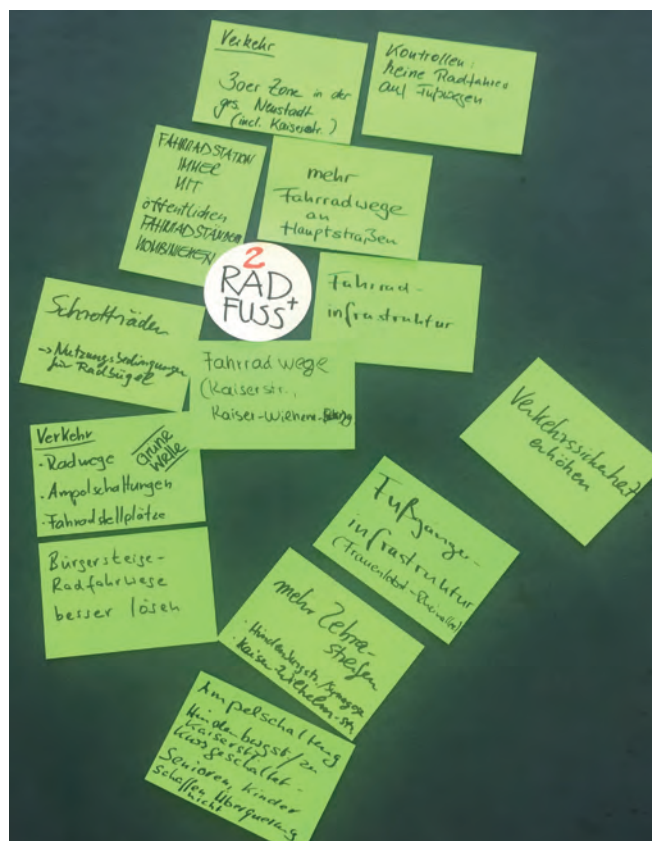 Verkehr
30er Zone in der
ges. Neustadt
(incl. Kaiserstr.)
Kontrollen:
keine Radfahrer
auf Fußwegen
FAHRRADSTATION
IMMER
MIT
öffentlichen
FAHRRADSTÄNDERN
KOMBINIEREN
mehr
Fahrradwege
an
Hauptstraßen
2
RAD +
FUSS
Fahrrad-
infrastruktur
Schrotträder
→ Nutzungsbedingungen
für Radbügel
Fahrradwege
(Kaiserstr.,
Kaiser-Wilhelm-Ring)
Verkehr
Grüne
Welle
• Radwege
• Ampelschaltungen
• Fahrradstellplätze
Verkehrssicherheit
erhöhen
Bürgersteige-
Radfahrwege
besser lösen
Fußgänger-
infrastruktur
(Frauenlobstr-Rheinallee)
mehr Zebra-
streifen
• Hindenburgstr./Synagoge
• Kaiser-Wilhelm-
Ampelschaltung
Hindenburgst/zu
Kaiserstr.
kurz geschaltet -
Senioren, Kinder
schaffen Überquerung
nicht